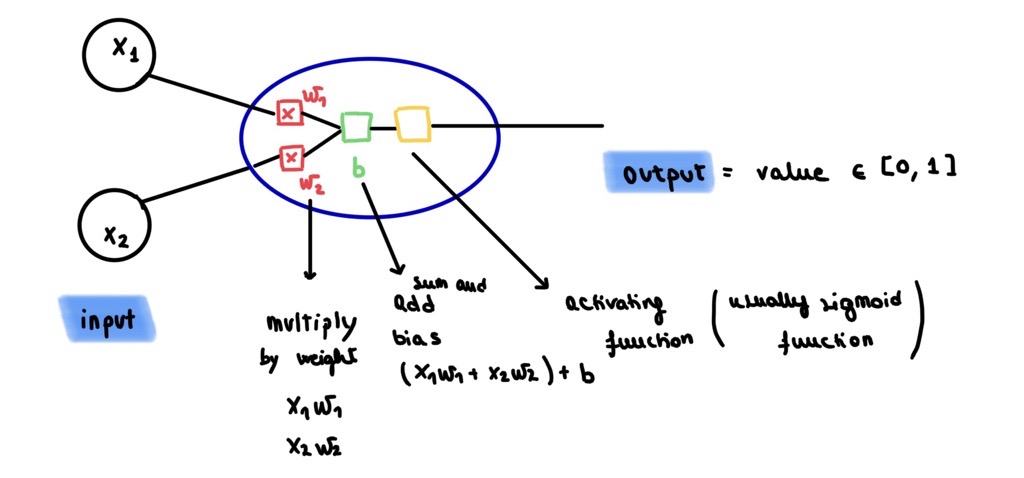 x₁
w₁
x
x
w₂
b
x₂
input
output = value ∈ [0, 1]
multiply
by weight
x₁w₁
x₂w₂
sum and
add
bias
(x₁w₁ + x₂w₂) + b
activating
function
(usually sigmoid
function)